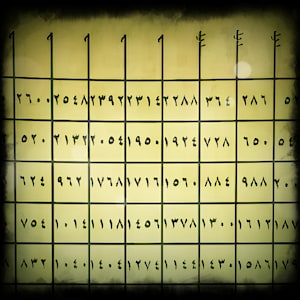 ٢٦٠٠ ٢٥٤٨ ٢٣٩٢ ٢٣١٤ ٢٢٨٨ ٣٦٤ ٢٨٦
٥٢٠ ٢١٣٢ ٢٠٥٤ ١٩٥٠ ١٩٢٤ ٧٢٨ ٦٥٠
٦٢٤ ٩٦٢ ١٧٦٨ ١٧١٦ ١٥٦٠ ٨٨٤ ٩٨٨
٧٥٤ ١٠١٤ ١١١٨ ١٤٥٦ ١٣٧٨ ١٣٠٠ ١٦١٢
٨٣٢ ١٠٤٠ ١٤٠٤ ١٢٧٤ ١١٤٤ ١٤٣٠ ١٥٨٦